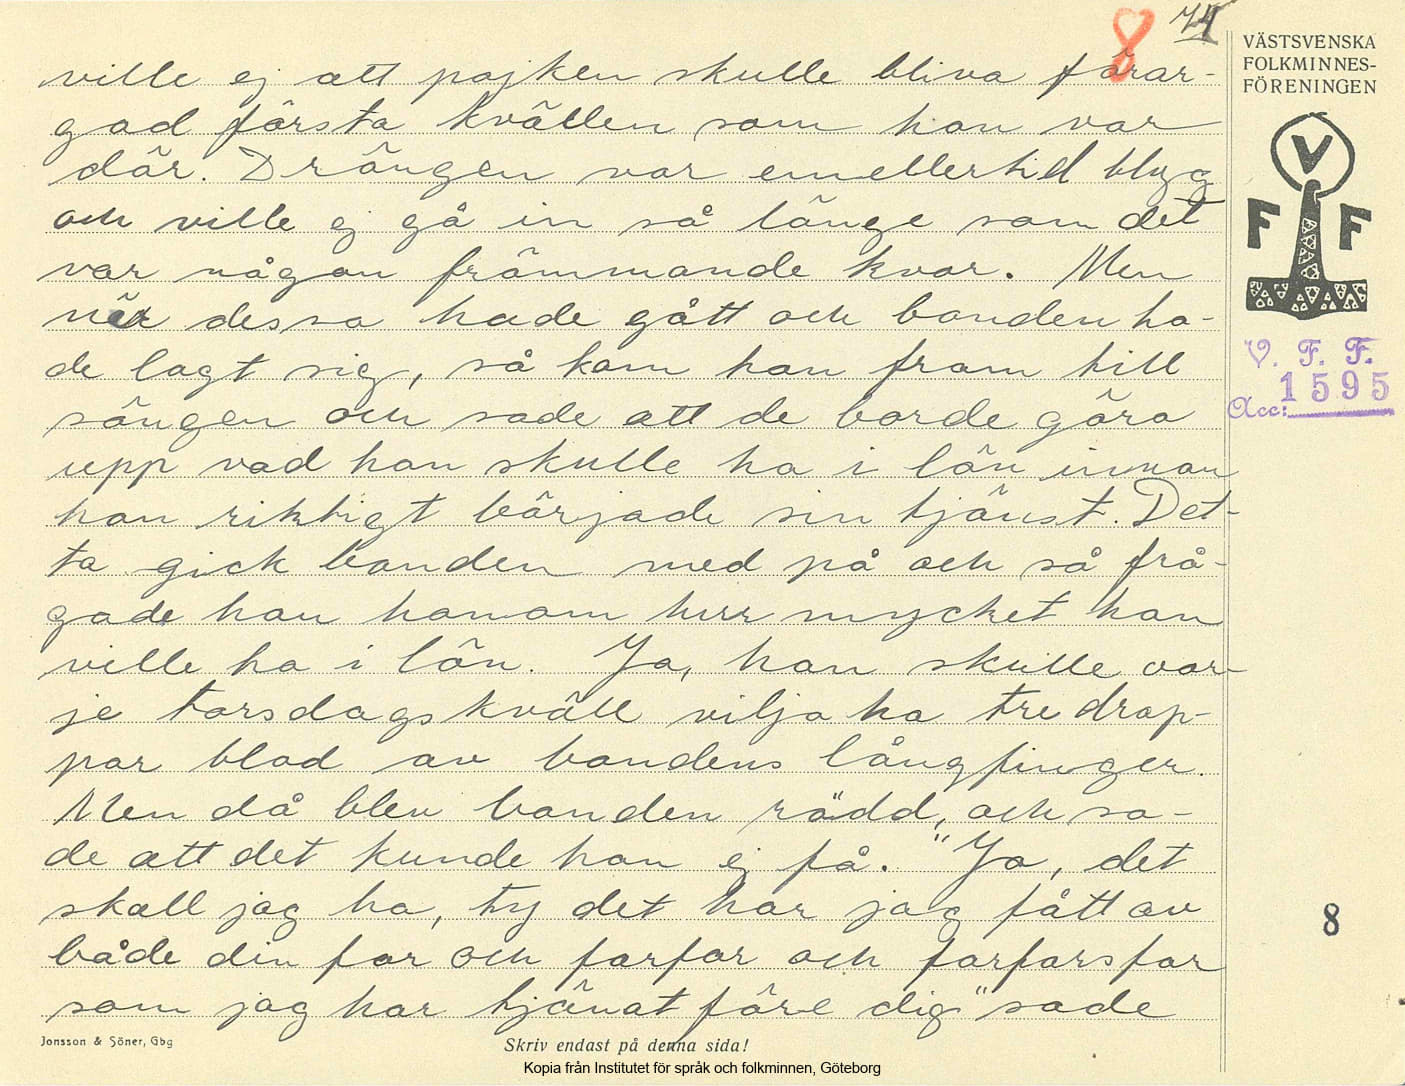 8 74
ville ej att pojken skulle bliva förar-
gad första kvällen som han var
där. Drängen var emellertid blyg
och ville ej gå in så länge som det
var någon främmande kvar. Men
när dessa hade gått och bonden ha-
de lagt sig, så kom han fram till
sängen och sade att de borde göra
upp vad han skulle ha i lön innan
han riktigt började sin tjänst. Det-
ta gick bonden med på och så frå-
gade han honom hur mycket han
ville ha i lön. Ja, han skulle var-
je torsdagskväll vilja ha tre drop-
par blod av bondens långfinger.
Men då blev bonden rädd, och sa-
de att det kunde han ej få. "Ja, det
skall jag ha, ty det har jag fått av
både din far och farfar och farfarsfar
som jag har tjänat före dig" sade
VÄSTSVENSKA
FOLKMINNES-
FÖRENINGEN
V
F F
V. F. F.
Acc: 1595
8
Jonsson & Söner, Gbg
Skriv endast på denna sida!
Kopia från Institutet för språk och folkminnen, Göteborg